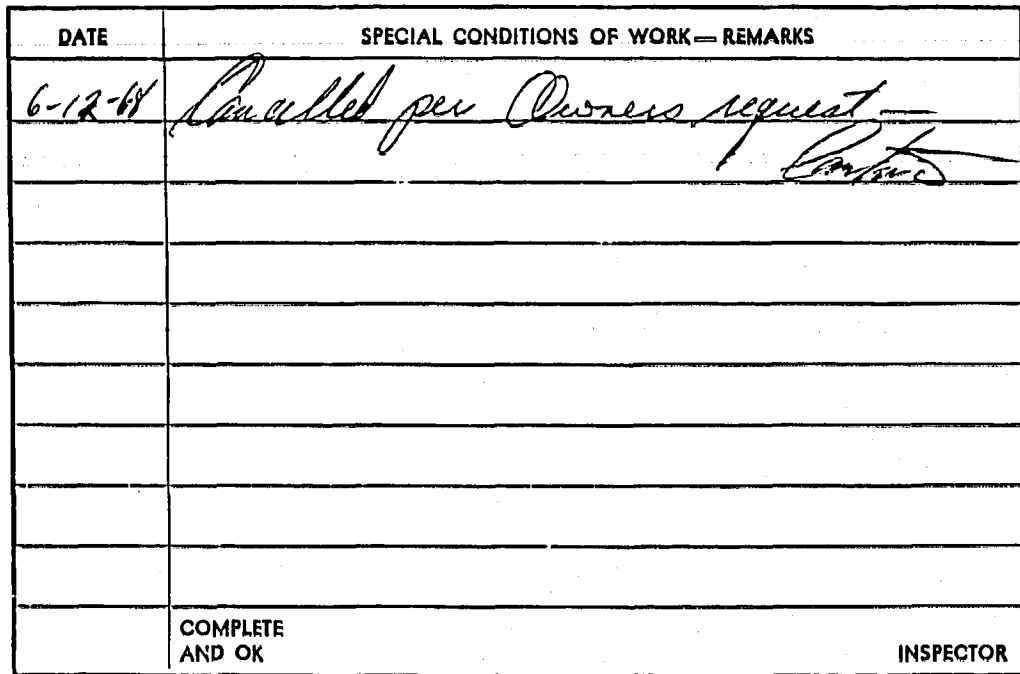 DATE SPECIAL CONDITIONS OF WORK — REMARKS
6-12-68 Cancelled per Owners request —
COMPLETE
AND OK INSPECTOR